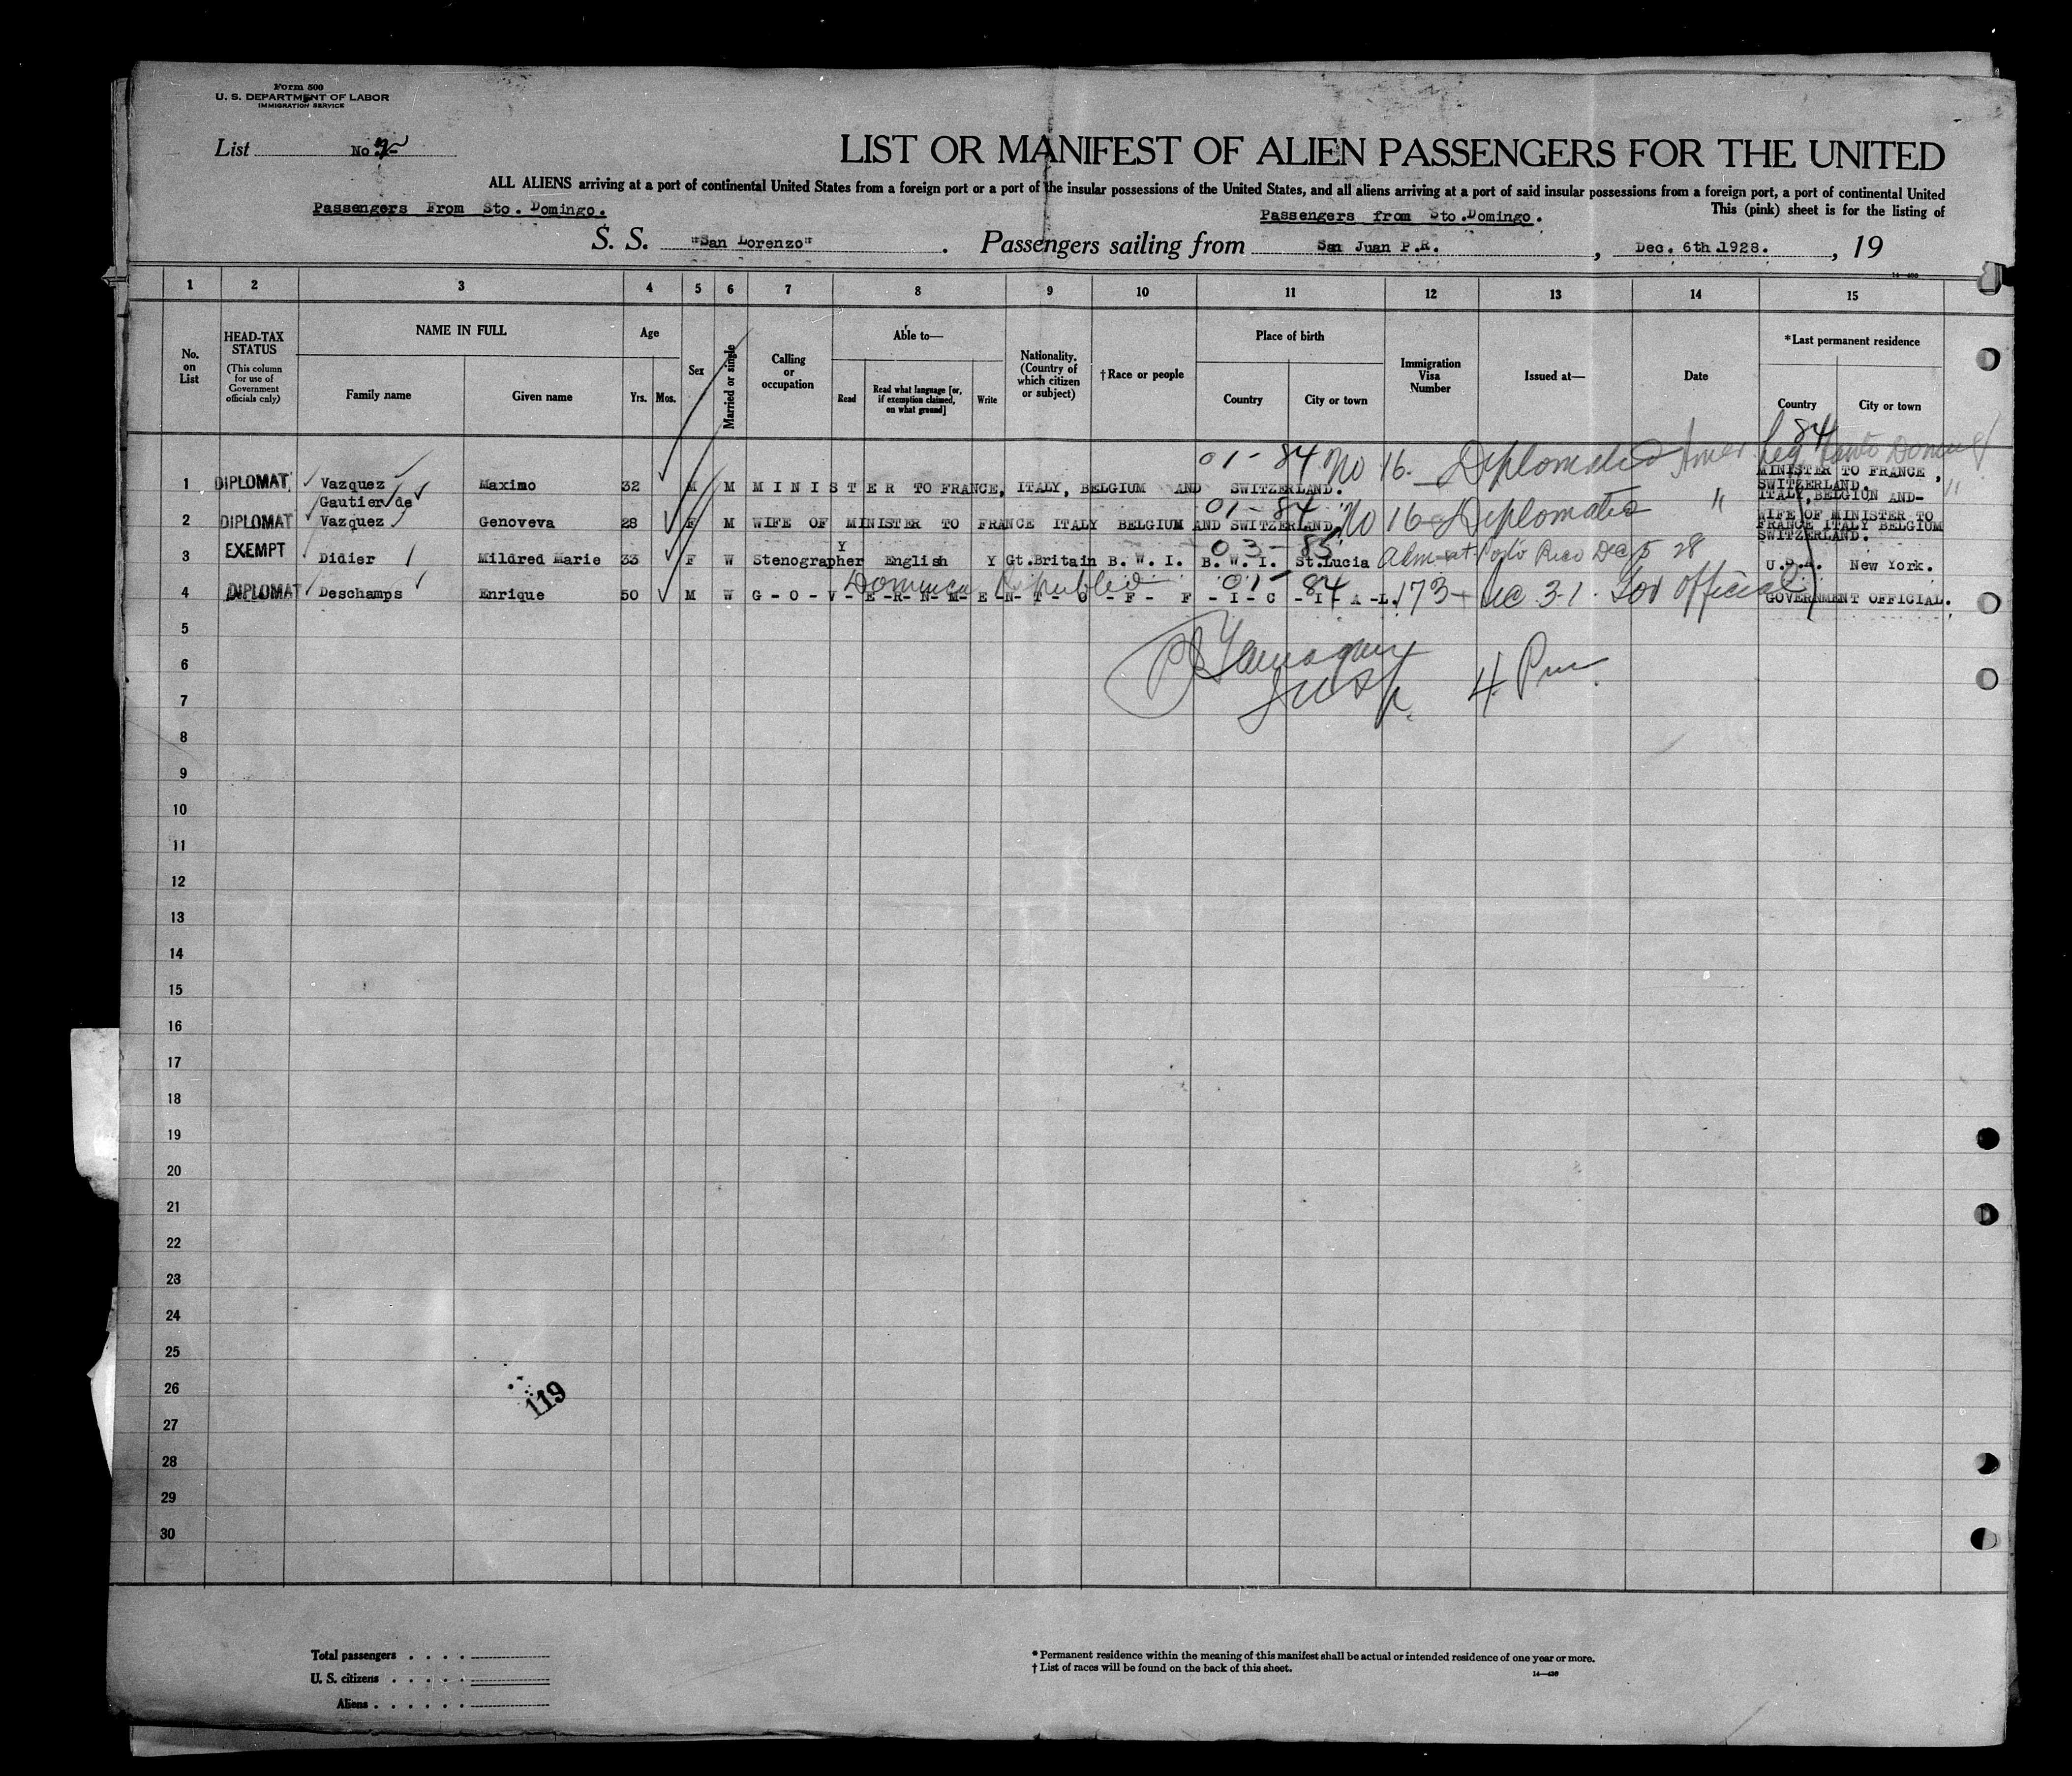 Form 500
U. S. DEPARTMENT OF LABOR
IMMIGRATION SERVICE
List No 2
LIST OR MANIFEST OF ALIEN PASSENGERS FOR THE UNITED
ALL ALIENS arriving at a port of continental United States from a foreign port or a port of the insular possessions of the United States, and all aliens arriving at a port of said insular possessions from a foreign port, a port of continental United
Passengers From Sto. Domingo. Passengers from Sto.Domingo. This (pink) sheet is for the listing of
S. S. "San Lorenzo". Passengers sailing from San Juan P.R., Dec. 6th.1928., 19
14-430
1 2 3 4 5 6 7 8 9 10 11 12 13 14 15
No. on List
HEAD-TAX STATUS
(This column for use of Government officials only)
NAME IN FULL
Family name Given name
Age
Yrs. Mos.
Sex
Married or single
Calling or occupation
Able to—
Read Read what language [or, if exemption claimed, on what ground] Write
Nationality. (Country of which citizen or subject)
†Race or people
Place of birth
Country City or town
Immigration Visa Number
Issued at—
Date
*Last permanent residence
Country City or town
84
01-84 No 16. Diplomatic Amer Leg Santo Domingo
1 DIPLOMAT Vazquez Maximo 32 M M MINISTER TO FRANCE, ITALY, BELGIUM AND SWITZERLAND. MINISTER TO FRANCE, SWITZERLAND. ITALY, BELGIUN AND-
Gautier de
01-84 No 16 - Diplomatic " "
2 DIPLOMAT Vazquez Genoveva 28 F M WIFE OF MINISTER TO FRANCE ITALY BELGIUM AND SWITZERLAND. WIFE OF MINISTER TO FRANCE ITALY BELGIUM SWITZERLAND.
03-85
3 EXEMPT Didier Mildred Marie 33 F W Stenographer Y English Y Gt.Britain B. W. I. B. W. I. St.Lucia Adm at Porto Rico Dec 5 28 U.S.A. New York.
Dominican Republic 01-84
4 DIPLOMAT Deschamps Enrique 50 M W G-O-V-E-R-N-M-E-N-T-O-F-F-I-C-I-A-L. 173 - Dec 3-1. Gov Official GOVERNMENT OFFICIAL.
5
6
Insp. 4 Pm
7
8
9
10
11
12
13
14
15
16
17
18
19
20
21
22
23
24
25
26
119
27
28
29
30
Total passengers . . . .
U. S. citizens . . . . .
Aliens . . . . . .
* Permanent residence within the meaning of this manifest shall be actual or intended residence of one year or more.
† List of races will be found on the back of this sheet.
14-430